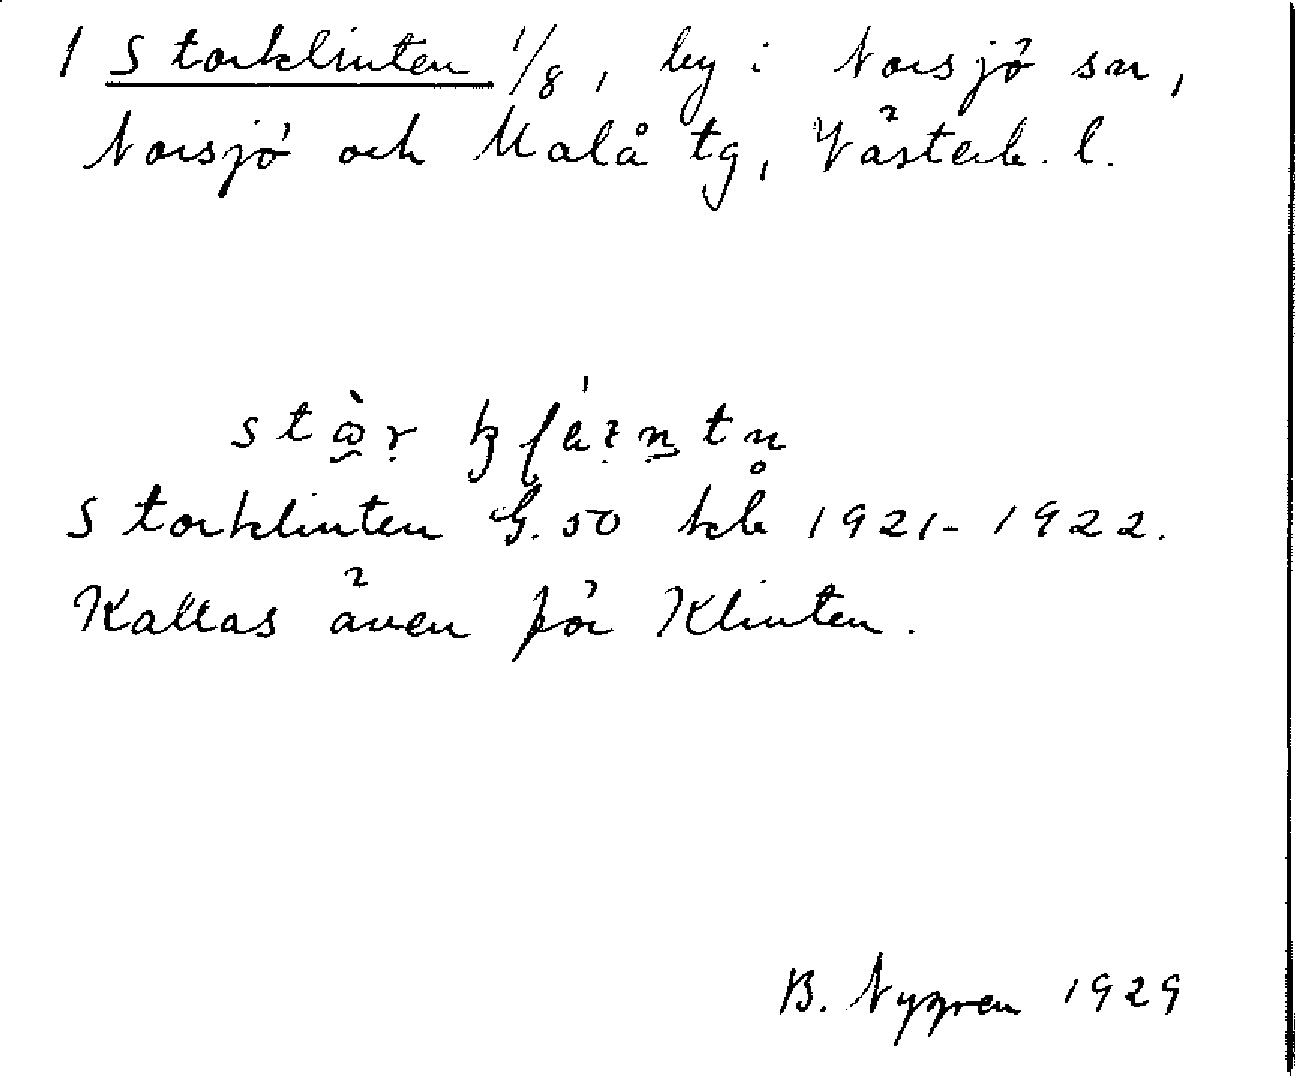 1 Storklinten 1/8, by i Norsjö sn,
Norsjö och Malå tg, Västerb. l.
Storklinten G. 50 kb 1921-1922.
Kallas även för Klinten.
B. Nygren 1929